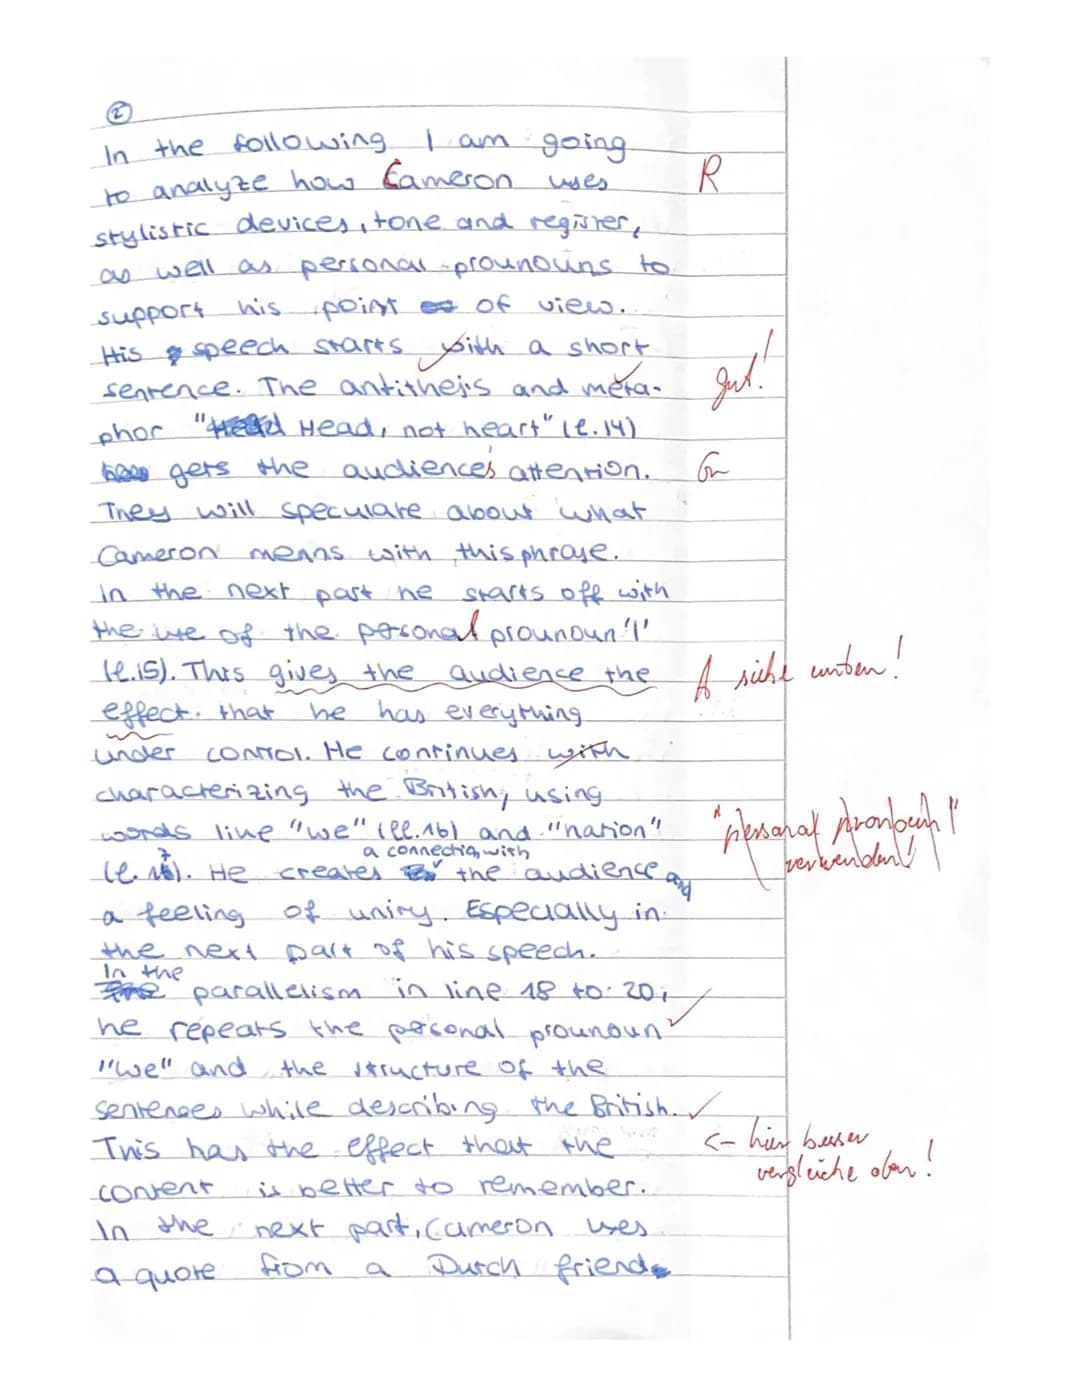 ②
In the following I am going
to analyze how Cameron uses R
stylistic devices, tone and register,
as well as personal prounouns to
support his point of view.
His speech starts with a short
sentence. The antithesis and meta- gut!
phor "Head, not heart" (l.14)
gets the audience's attention. Gr
They will speculate about what
Cameron means with this phrase.
In the next part he starts off with
the use of the personal prounoun 'I'
(l.15). This gives the audience the A siehe unten!
effect that he has everything
under control. He continues with
characterizing the British, using
words like "we" (ll.16) and "nation" "personal pronoun"
a connection with verwenden!
(l.17). He creates the audience and
a feeling of unity. Especially in
the next part of his speech.
In the
parallelism in line 18 to 20,
he repeats the personal prounoun
"we" and the structure of the
sentences while describing the British.
This has the effect that the <- hier besser
content is better to remember. vergleiche oben!
In the next part, Cameron uses
a quote from a Dutch friend